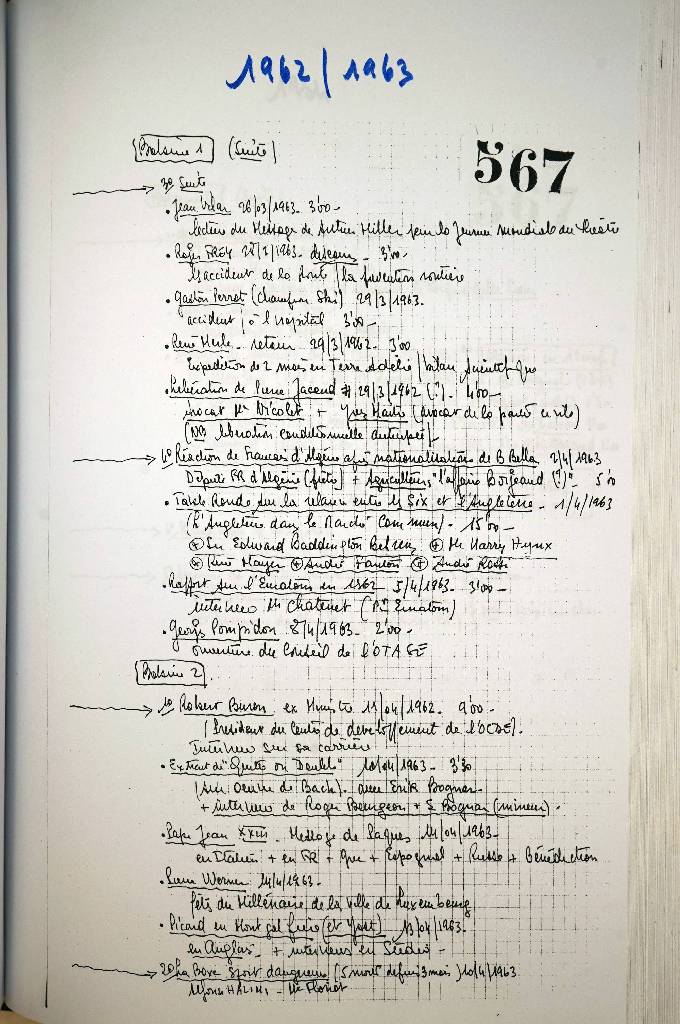 1962/1963
567
Bobine 1 (Suite)
3° Suite
. Jean Vilar 26/03/1963 - 3'00 -
lecture du Message de Arthur Miller pour la Journée mondiale du théâtre
. Roger FREY 28/3/1963 - discours - 3'00 -
les accidents de la route / la prévention routière
. Gaston Perrot (champion Ski) 29/3/1963 -
accident / à l'hôpital 3'00 -
. René Merle - retour 29/3/1962 - 3'00
Expédition de 2 mois en Terre Adélie / bilan scientifique
. Libération de Pierre Jaccoud 29/3/1962 (?) - 4'00 -
avocat Me Nicolet + Yves Maitre (avocat de la partie civile)
(NB libération conditionnelle anticipée) -
4° Réaction de Français d'Algérie après nationalisations de B Bella 2/4/1963
Député FR d'Algérie + Agriculteurs "l'affaire Borgeaud (?)" 5'00
. Table Ronde sur la relation entre les Six et l'Angleterre - 1/4/1963
(L'Angleterre dans le Marché Commun) - 15'00 -
+ Sir Edward + Mr Harry
+ René Mayer + André Fanton + André Rossi
. Rapport sur l'Euratom en 1962 - 5/4/1963 - 3'00 -
interview Mr Chatenet (Pt Euratom)
. Georges Pompidou 8/4/1963 - 2'00 -
ouverture du Conseil de l'OTASE
Bobine 2.
1° Robert Buron ex Ministre 11/04/1962 - 9'00 -
(Président du Centre de développement de l'OCDE) -
Interview sur sa carrière
. Extrait de "Quitte ou Double" 10/04/1963 - 3'30
(sur oeuvre de Bach). avec Erik Bognar
+ interview de Roger Bourgeon + E Bognar (mineur) .
. Pape Jean XXIII - Message de Pâques 14/04/1963 -
en Italien + en FR + Grec + Espagnol + Russe + Bénédiction
. Pierre Werner 14/4/1963 -
fêtes du Millénaire de la Ville de Luxembourg
. Picard en Montgolfière (et Yost) 13/04/1963 -
en Anglais - + interviews en Suédois -
2° La Boxe Sport dangereux (5 morts depuis 3 mois) 10/4/1963
Alphonse HALIMI - Me Floriot